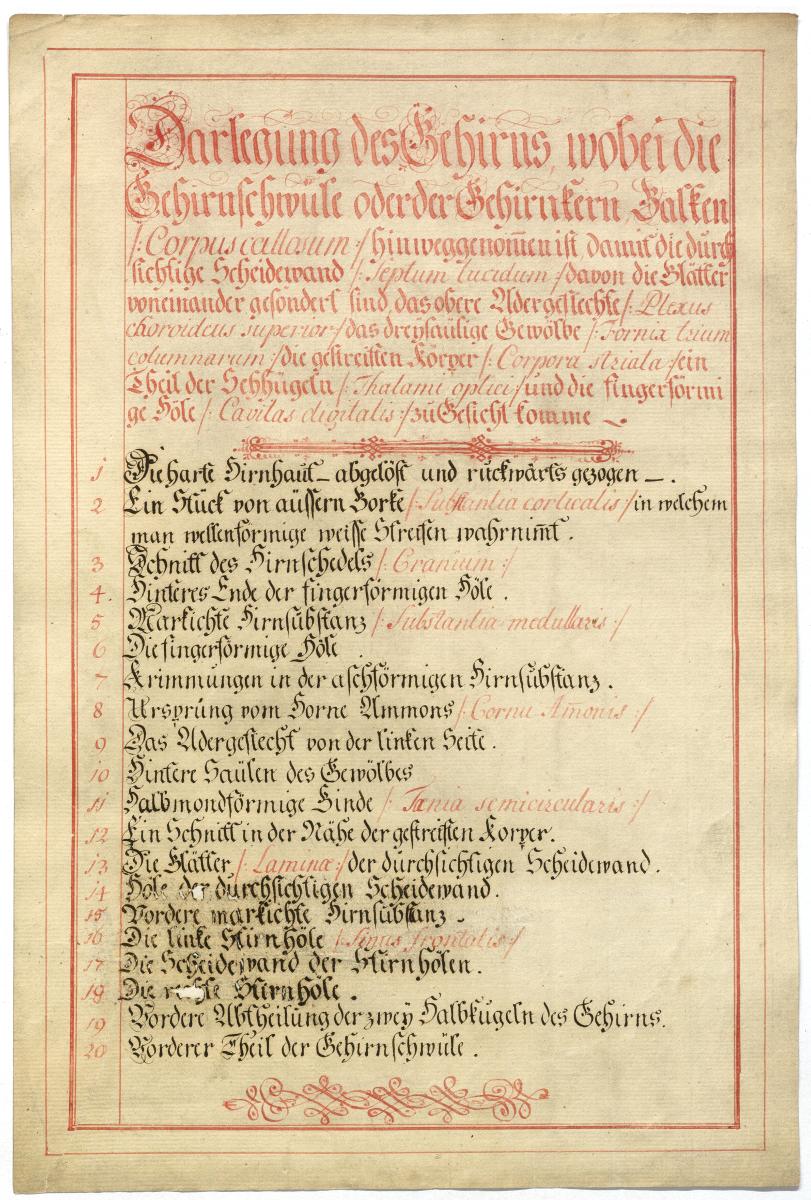 Darlegung des Gehirns, wobei die
Gehirnschwüle oder der Gehirnkern, Balken
/: Corpus callosum :/ hinweggenom̄en ist, damit die durch
sichtige Scheidewand /: Septum lucidum :/ davon die Blätter
voneinander gesondert sind, das obere Adergeflechte /: Plexus
choroideus superior :/ das dreysäulige Gewölbe /: Fornix trium
columnarum :/ die gestreiften Körper /: Corpora striata :/ ein
Theil der Sehhügeln /: Thalami optici :/ und die fingerförmi
ge Höle /: Cavitas digitalis :/ zu Gesicht komme
1 Die harte Hirnhaut abgelöst und ruckwärts gezogen.
2 Ein Stück von äüssern Borke /: Substantia corticalis :/ in welchem
man wellenförmige weisse Streifen wahrnim̄t.
3 Schnitt des Hirnschedels /: Cranium :/
4. Hinteres Ende der fingerförmigen Höle.
5 Markichte Hirnsubstanz /: Substantia medullaris :/
6 Die fingerförmige Höle.
7 Krimmungen in der aschförmigen Hirnsubstanz.
8 Ursprüng vom Horne Ammons /: Cornu Am̄onis :/
9 Das Adergeflecht von der linken Seite.
10 Hintere Saülen des Gewölbes
11 Halbmondförmige Binde /: Tænia semicircularis :/
12 Ein Schnitt in der Nähe der gestreiften Korper.
13 Die Blätter /: Laminæ :/ der dürchsichtigen Scheidewand.
14 Höle der dürchsichtigen Scheidewand.
15 Vordere markichte Hirnsubstanz.
16 Die linke Stirnhöle /: Sinus frontalis :/
17 Die Scheidewand der Stirnhölen.
18 Die rechte Stirnhöle.
19 Vordere Abtheilung der zwey Halbkugeln des Gehirns.
20 Vorderer Theil der Gehirnschwüle.